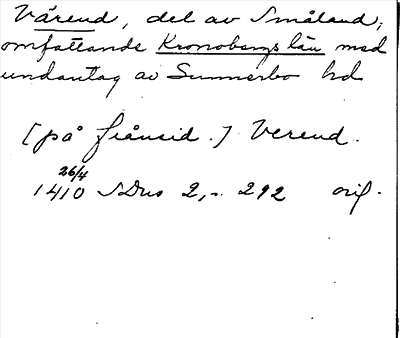 Värend, del av Småland,
omfattande Kronobergs län med
undantag av Sunnerbo hd
[på frånsid.] Verend.
26/4
1410 SDns 2, s. 292 orig.